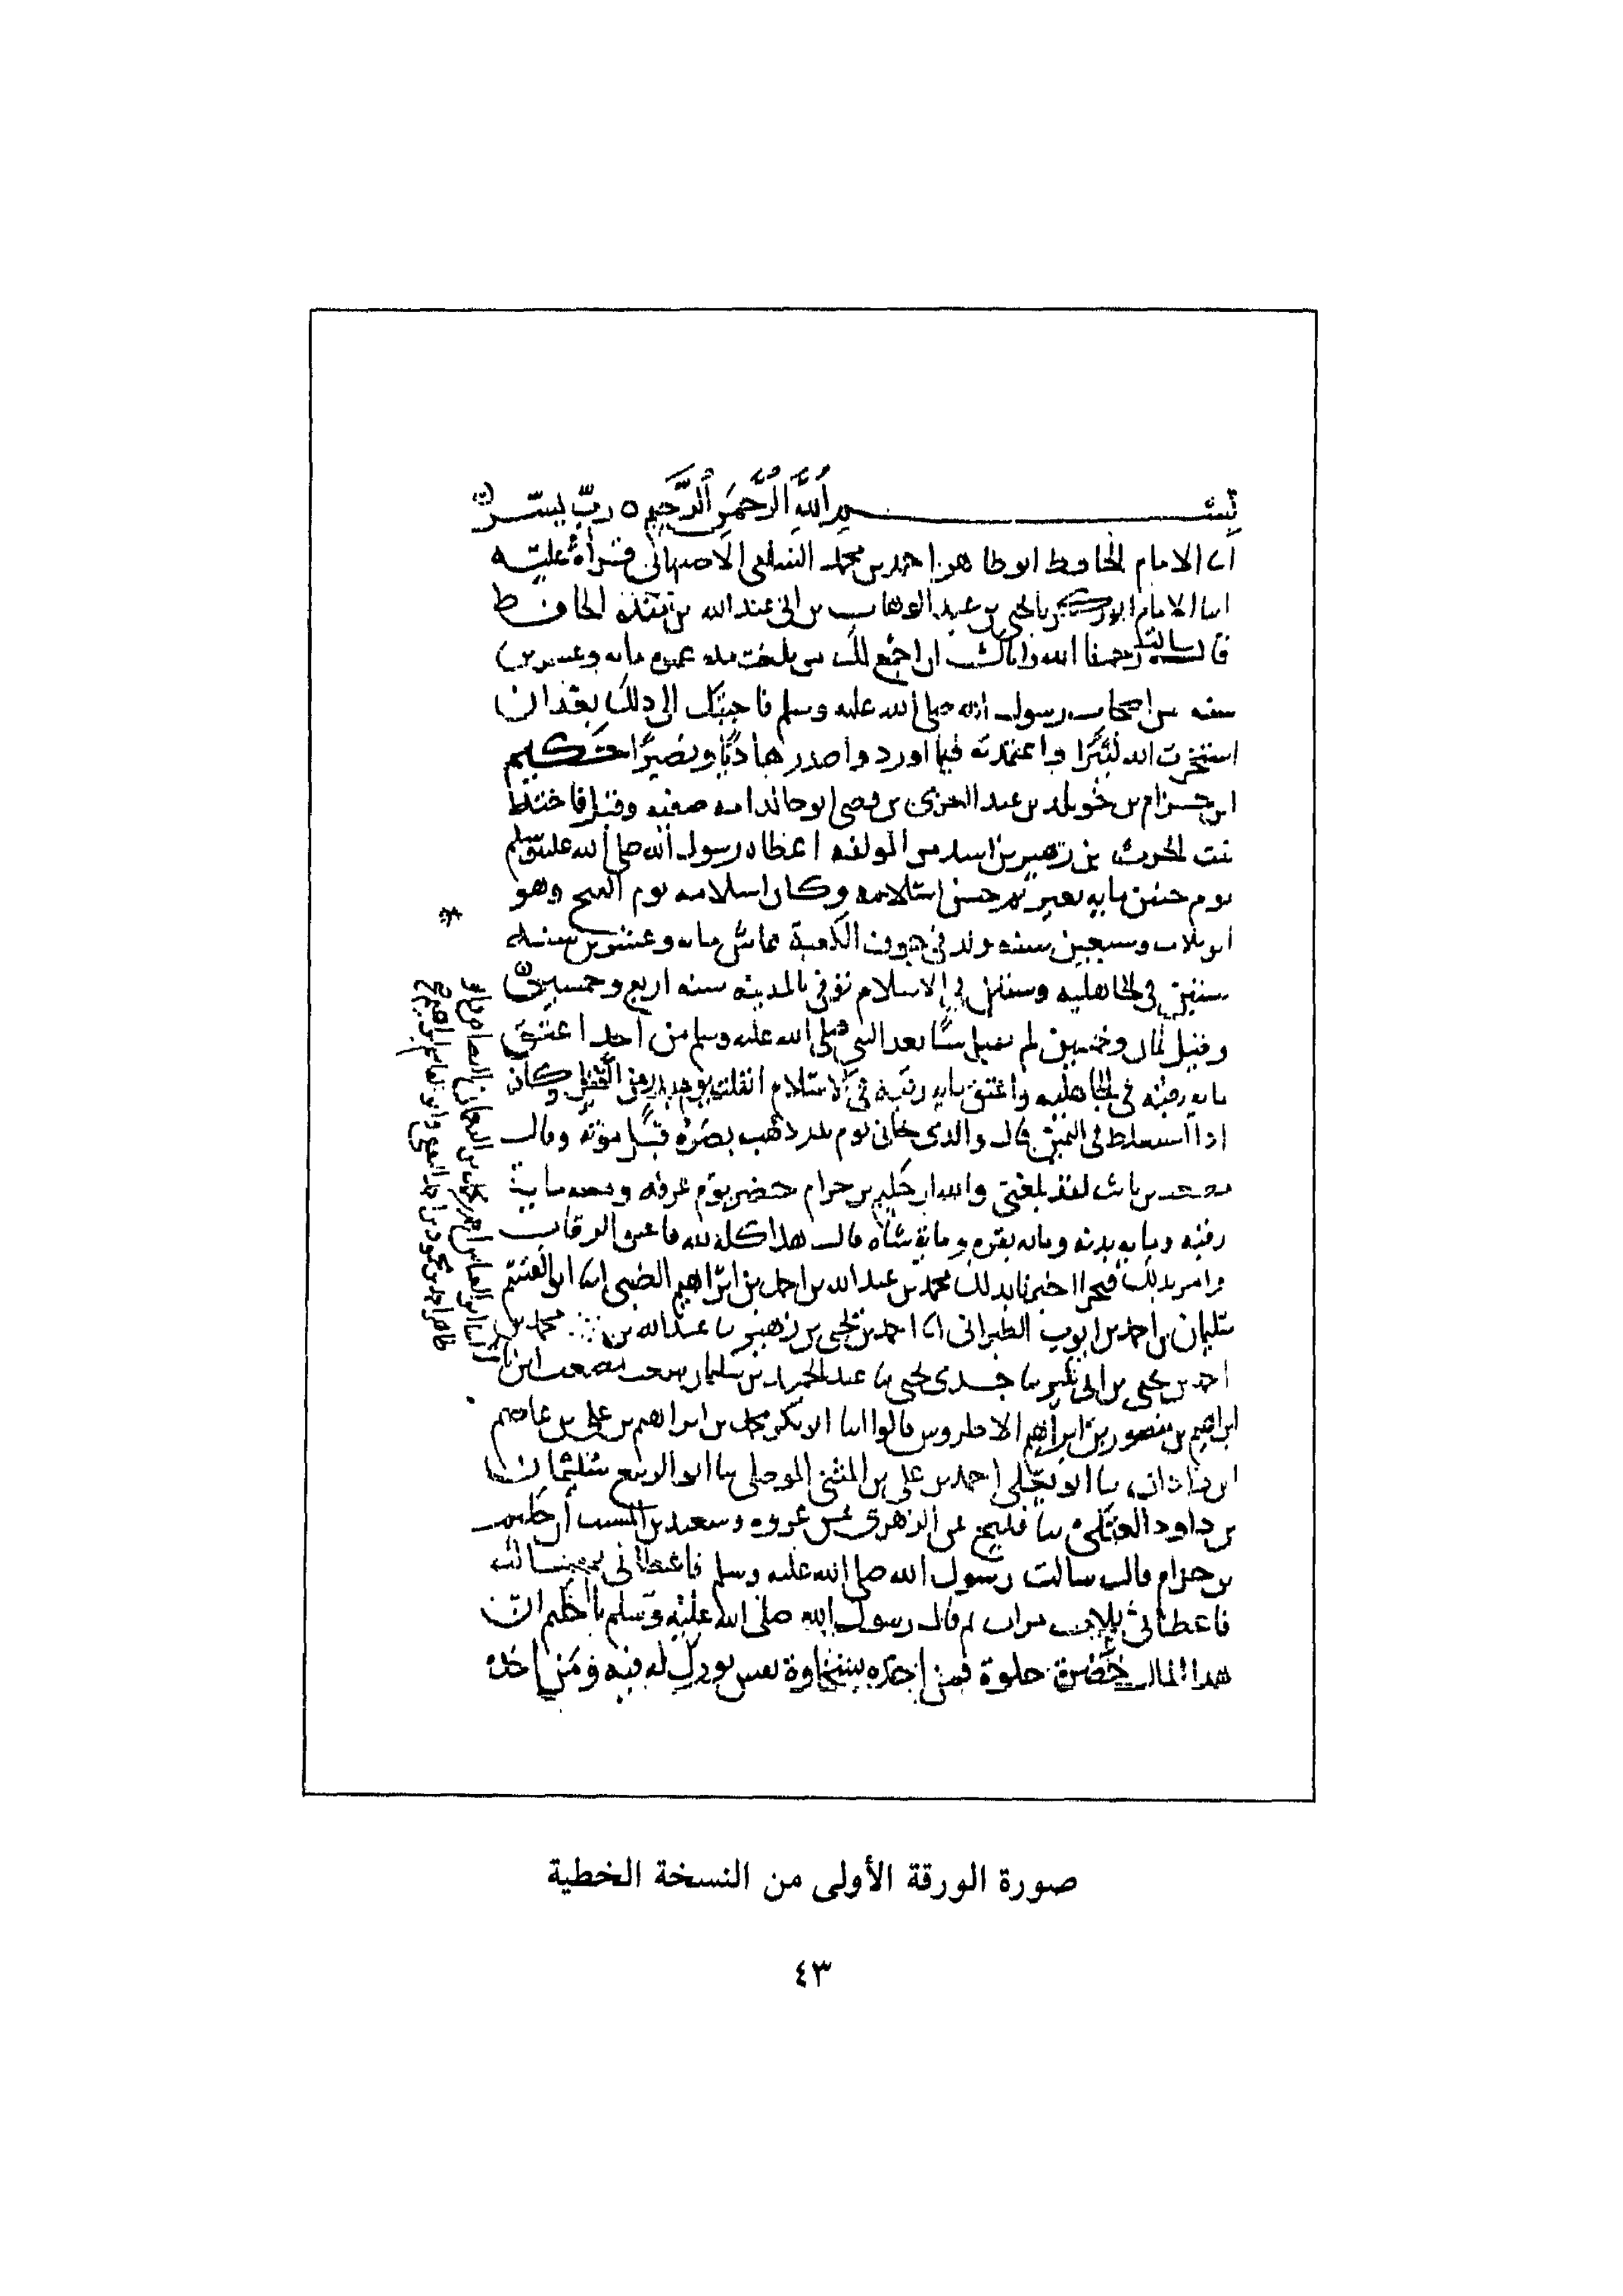 بسم الله الرحمن الرحيم ٥ رب يسر
انا الامام الحافظ ابو طاهر احمد بن محمد السلفي الاصبهاني قراة عليه
انبا الامام ابو زكريا يحيى بن عبد الوهاب بن ابي عبد الله بن منده الحافظ
قال سالت رحمنا الله واياك ان اجمع لك من بلغت مدة عمره مايه وعشرين
سنه من اصحاب رسول الله صلى الله عليه وسلم فاجبتك الى ذلك بعد ان
استخرت الله واعتمدته فيما اورد واصدر هاديا ونصيرا حكيم
ابن حزام بن خويلد بن عبد العزى بن قصي ابو خالد امه صفيه وقيل فاخته
بنت الحرث بن زهير بن اسد من المولفه اعطاه رسول الله صلى الله عليه وسلم
يوم حنين مايه بعير ثم حسن اسلامه وكان اسلامه يوم الفتح وهو
ابن ثلاث وسبعين سنه ولد في جوف الكعبة عاش مايه وعشرين سنه
ستين في الجاهليه وستين في الاسلام توفي بالمدينه سنه اربع وخمسين
وقيل ثمان وخمسين لم يقبل شيا بعد النبي صلى الله عليه وسلم من احد اعتق
مايه رقبه في الجاهليه واعتق مايه رقبه في الاسلام انفلت يوم بدر من القتل وكان
اذا استغلظ في اليمين قال والذي نجاني يوم بدر ذهب بصره قبل موته وقال
مصعب بن ثابت لقد بلغني والله ان حكيم بن حزام حضر يوم عرفه ومعه ماية
رقبه ومايه بدنه ومايه بقره وماية شاه قال هذا كله لله فاعتق الرقاب
وامر بذلك فنحر اخبرنا بذلك محمد بن عبد الله بن احمد بن ابراهيم الضبي انا ابو القسم
سليمان بن احمد بن ايوب الطبراني نا احمد بن يحيى بن زهير نا عبد الله بن محمد بن
احمد بن يحيى بن ابي بكير نا جدي يحيى نا عبد الحميد بن سليمان سمعت مصعب ابن ثابت
ابراهيم بن منصور بن ابراهيم قالوا انبا ابو بكر محمد بن ابراهيم بن علي بن عاصم
ابن زاذان نا ابو يعلى احمد بن علي بن المثنى الموصلي نا ابو الربيع سليمان
بن داود العتكي نا فليح عن الزهري عن عروه وسعيد بن المسيب ان حكيم
بن حزام قال سالت رسول الله صلى الله عليه وسلم فاعطاني ثم سالته
فاعطاني ثلاث مرات ثم قال رسول الله صلى الله عليه وسلم يا حكيم ان
هذا المال خضرة حلوة فمن اخذه بسخاوة نفس بورك له فيه ومن اخذه
صورة الورقة الأولى من النسخة الخطية
٤٣